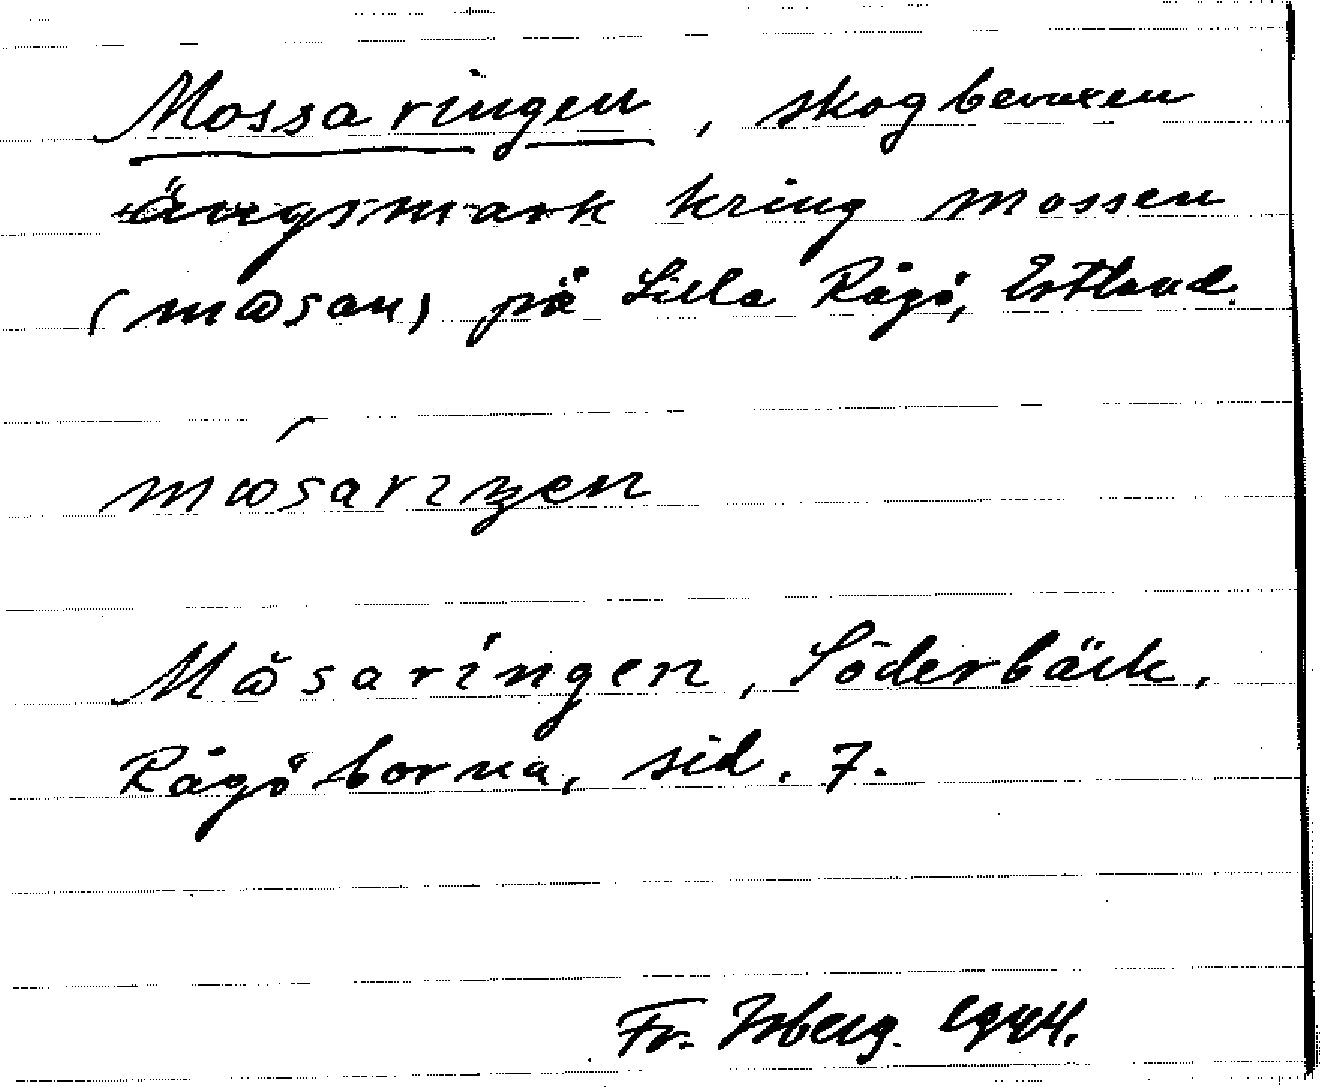 Mossaringen, skogbevuxen
ängsmark kring mossen
(mɷsan) på Lilla Rågö, Estland.
mɷ́sarıŋen
Mɷ̆saringen, Söderbäck,
Rågöborna, sid. 7.
Fr. Isberg. 1944.